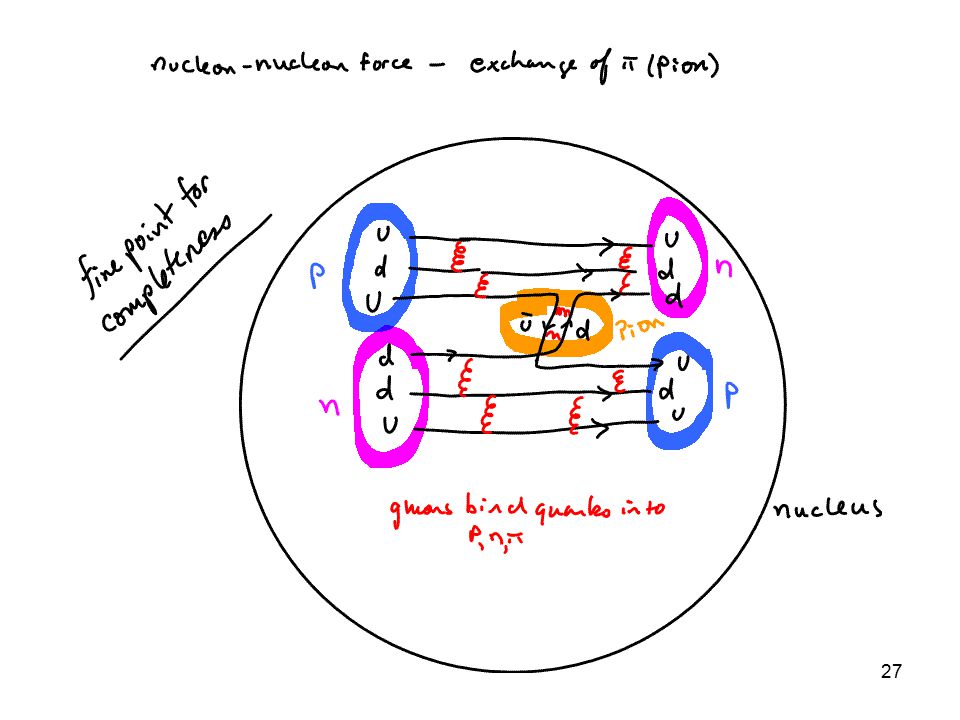 nucleon-nucleon force - exchange of π (pion)
fine point for
completeness
P
u
d
u
u
d
d
n
ū d
Pion
n
d
d
u
u
d
u
P
gluons bind quarks into
P, n, π
nucleus
27